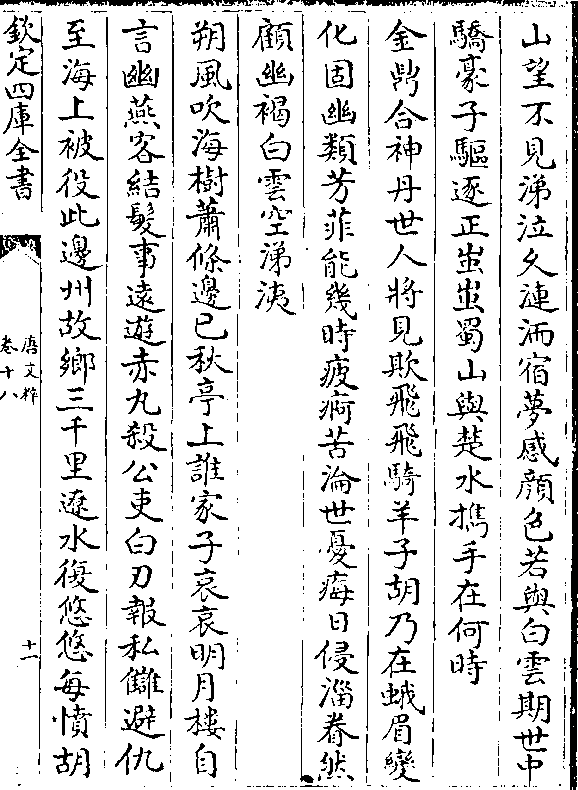 山望不見涕泣久漣洏宿夢感顔色若與白雲期世中
驕豪子驅逐正蚩蚩蜀山與楚水携手在何時
金鼎合神丹世人將見欺飛飛騎羊子胡乃在蛾眉變
化固幽類芳菲能幾時疲痾苦淪世憂痗日侵淄眷然
顧幽褐白雲空涕洟
朔風吹海樹蕭條邊已秋亭上誰家子哀哀明月樓自
言幽燕客結髮事遠遊赤九殺公吏白刃報私讎避仇
至海上被役此邊州故鄉三千里遼水復悠悠每憤胡
欽定四庫全書
唐文粹
卷十八
十一